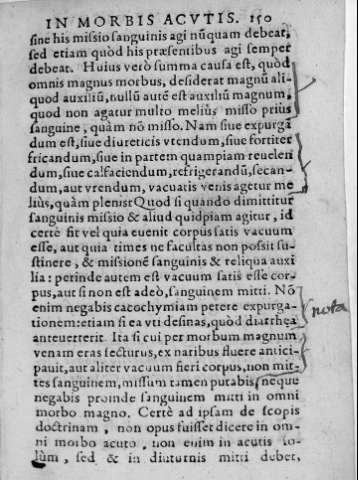 IN MORBIS ACVTIS. 150
sine his missio sanguinis agi nũquam debeat,
sed etiam quòd his præsentibus agi semper
debeat. Huius verò summa causa est, quòd
omnis magnus morbus, desiderat magnũ ali-
quod auxiliũ, nullũ autẽ est auxiliũ magnum,
quod non agatur multo meliùs misso priùs
sanguine, quàm nō misso. Nam siue expurgā
dum est, siue diureticis vtendum, siue fortiter
fricandum, siue in partem quampiam reuelen
dum, siue calfaciendum, refrigerandũ, secan-
dum, aut vrendum, vacuatis venis agetur me
liùs, quàm plenis: Quod si quando dimittitur
sanguinis missio & aliud quidpiam agitur, id
certè fit vel quia euenit corpus satis vacuum
esse, aut quia times ne facultas non possit su-
stinere, & missionẽ sanguinis & reliqua auxi
lia: perinde autem est vacuum satis esse cor-
pus, aut si non est adeò, sanguinem mitti. Nō
enim negabis cacochymiam petere expurga-
tionem: etiam si ea vti desinas, quòd diarrhęa
anteuerterit. Ita si cui per morbum magnum
venam eras secturus, ex naribus fluere antici-
pauit, aut aliter vacuum fieri corpus, non mit-
tes sanguinem, missum tamen putabis, neque
negabis proinde sanguinem mitti in omni
morbo magno. Certè ad ipsam de scopis
doctrinam, non opus fuisset dicere in om-
ni morbo acuto, non enim in acutis so-
lùm, sed & in diuturnis mitti debet,
nota